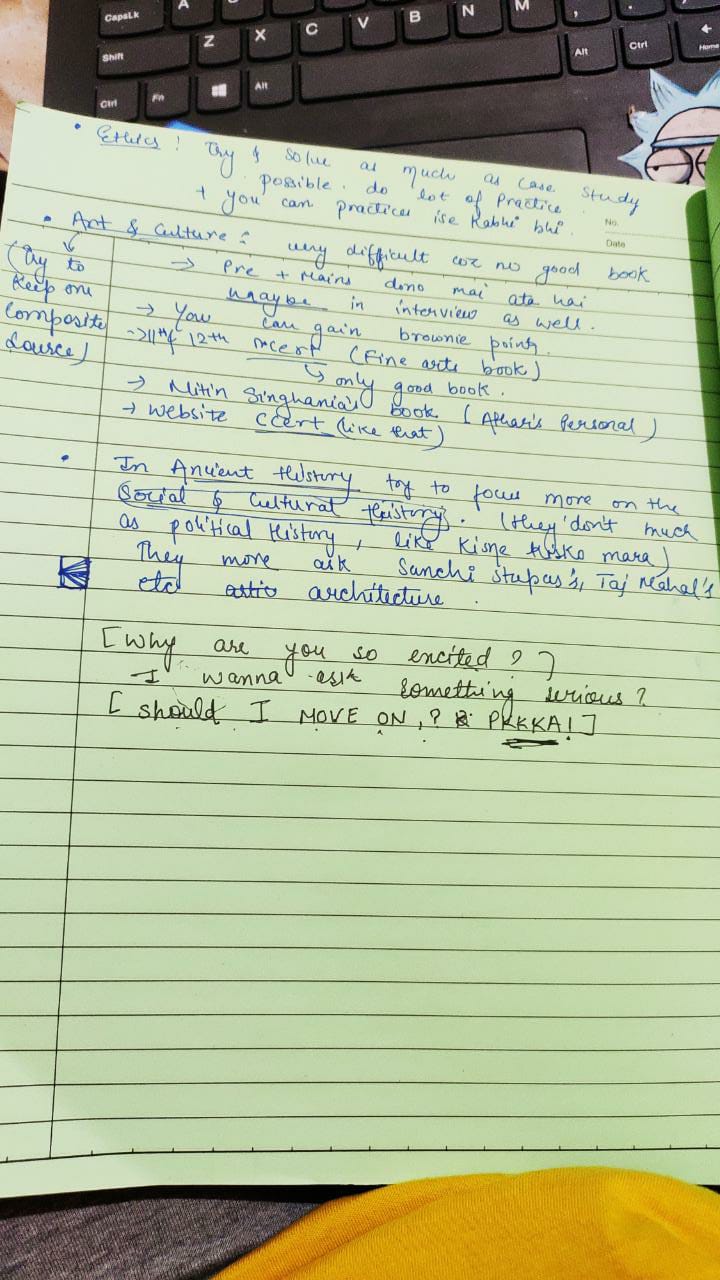 CapsLk
A
Shift
Z
X
C
V
B
N
M
Alt
Ctrl
Home
Ctrl
Fn
Alt
No.
Date
• Ethics : Try & solve as much as case study
possible. do lot of Practice.
+ you can practices ise Kabhi bhi.
• Art & Culture : very difficult coz no good book
(Try to
Keep one
Composite
Source)
→ Pre + Mains dono mai ata hai
maybe in interview as well.
→ You can gain brownie points.
→ 11th & 12th ncert (Fine arts book)
↳ only good book.
→ Nitin Singhania's book (Athar's Personal)
→ website ccert (like that)
• In Ancient History try to focus more on the
Social & Cultural History. (they don't much
as political History, like Kisne kisko mara)
They more ask Sanchi Stupas's, Taj Mahal's
etc architecture.
[Why are you so encited ?]
I wanna ask something serious ?
[ should I MOVE ON, ? PKKKA! ]